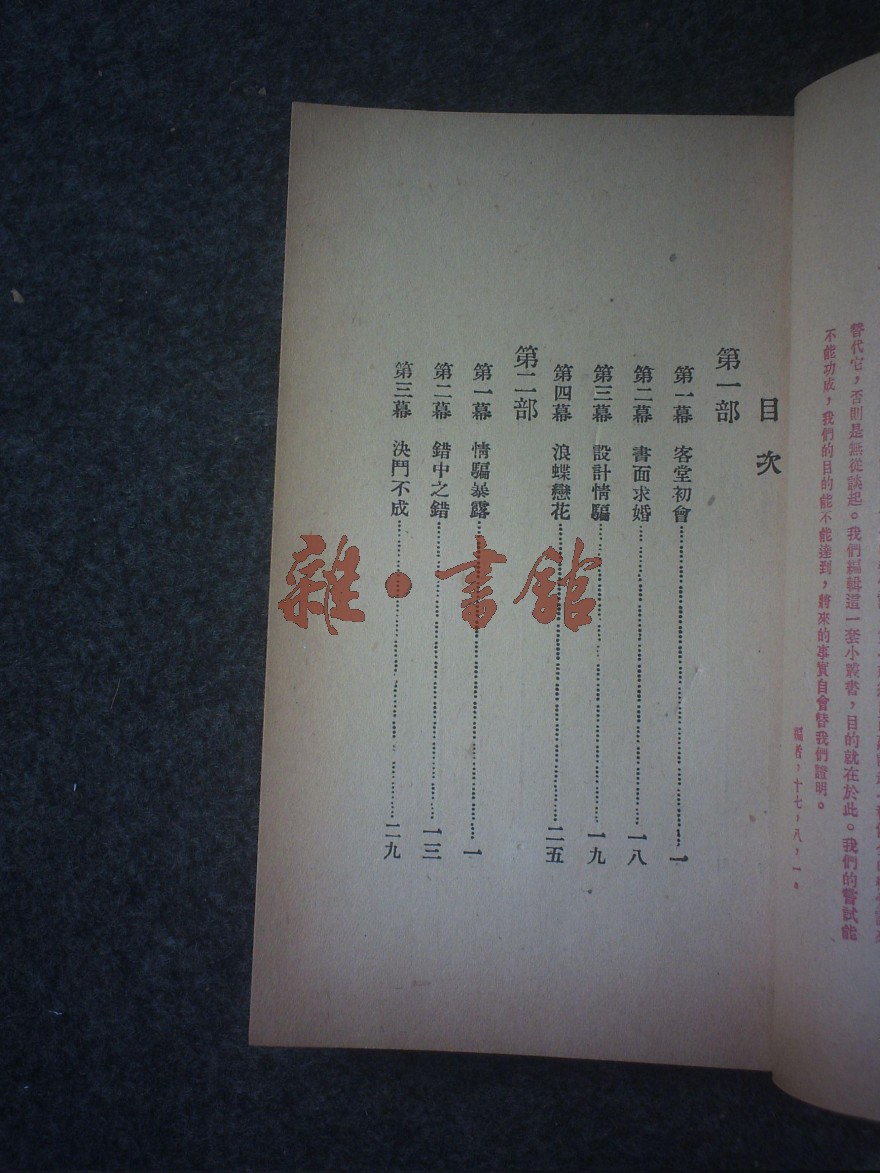 替代它，否則是無從談起。我們編輯這一套小叢書，目的就在於此。我們的嘗試能
不能功成，我們的目的能不能達到，將來的事實自會替我們證明。
編者，十七，八，一。
目次
第一部
第一幕 客堂初會…………一
第二幕 書面求婚…………一八
第三幕 設計情騙…………一九
第四幕 浪蝶戀花…………二五
第二部
第一幕 情騙暴露…………一
第二幕 錯中之錯…………一三
第三幕 決鬥不成…………二九
雜·書館